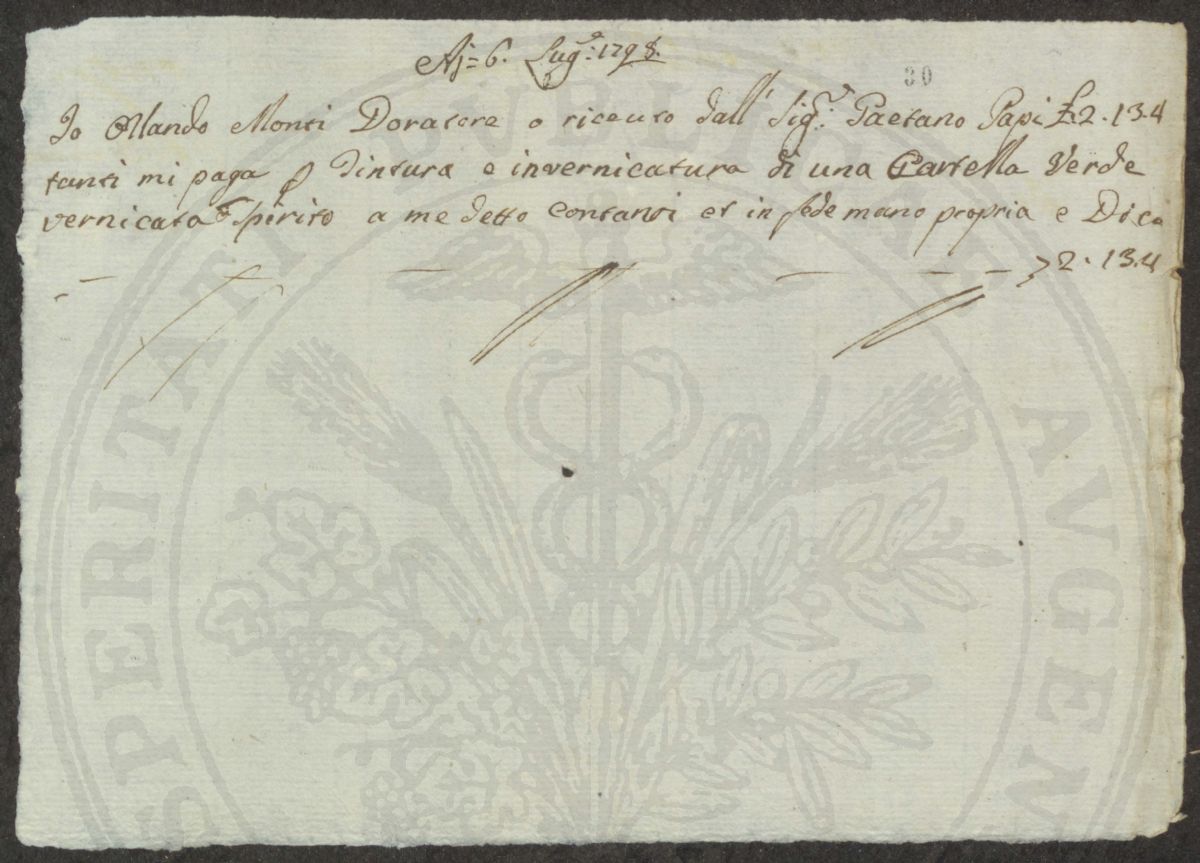 Aj = 6. Lug.o: 1798.
30
Io Orlando Monti Doratore o riceuto dall' Sig.r: Gaetano Papi £ 2. 13. 4
tanti mi paga p tintura e invernicatura di una Cartella Verde
vernicata Spirito a me detto contanti et in fede mano propria e Dico
2. 13. 4
SPERITATI PVBLICAE AVGEN